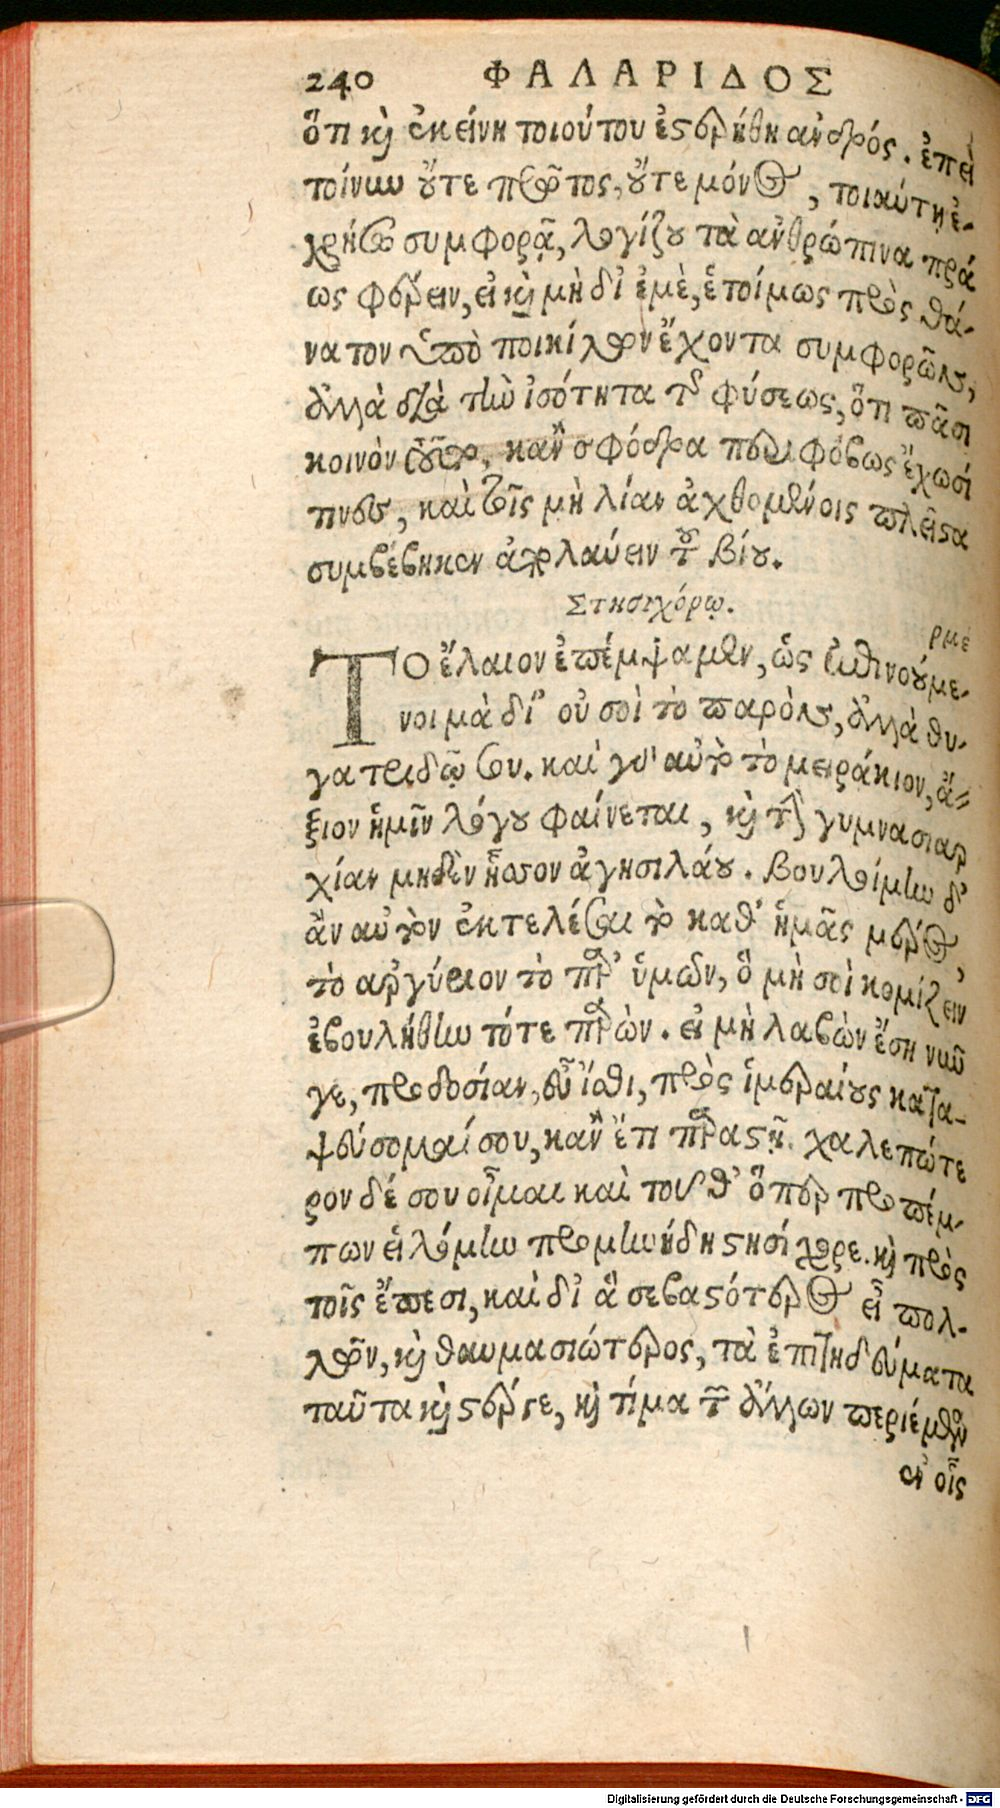 240 ΦΑΛΑΡΙΔΟΣ
ὅτι καὶ ἐκείνη τοιούτου ἐστερήθη ἀνδρός. ἐπεὶ
τοίνυν οὔτε πρῶτος, οὔτε μόνος, τοιαύτῃ ἐ-
χρήσω συμφορᾷ, λογίζου τὰ ἀνθρώπινα πρά
ως φέρειν, εἰ καὶ μὴ δι' ἐμὲ, ἑτοίμως πρὸς θά-
νατον ὑπὸ ποικίλων ἔχοντα συμφορῶν,
ἀλλὰ διὰ τὴν ἰσότητα τῆς φύσεως, ὅτι πᾶσι
κοινὸν κἂν σφόδρα περιφόβως ἔχωσί
τινες, καὶ τοῖς μὴ λίαν ἀχθομένοις πλεῖστα
συμβέβηκεν ἀπολαύειν τοῦ βίου.
Στησιχόρῳ.
ρμέ
ΤΟ ἔλαιον ἐπέμψαμεν, ὡς εὐθυνούμε-
νοι μὰ δι' οὐ σοὶ τὸ παρὸν, ἀλλὰ θυ-
γατριδῷ σου. καὶ γὰρ αὐτὸ τὸ μειράκιον, ἄ-
ξιον ἡμῖν λόγου φαίνεται, καὶ τὴν γυμνασιαρ
χίαν μηδὲν ἧσσον ἀγησιλάου. βουλοίμην δ'
ἂν αὐτὸν ἐκτελέσαι τὸ καθ' ἡμᾶς μέρος,
τὸ ἀργύριον τὸ παρ' ὑμῶν, ὃ μὴ σοὶ κομίζειν
ἐβουλήθην τότε παρών. εἰ μὴ λαβὼν ἔσῃ νῦν
γε, προδοσίαν, εὖ ἴσθι, πρὸς ἱμεραίους κατα-
ψεύσομαί σου, κἂν ἔτι παραστῇ. χαλεπώτε
ρον δέ σου οἶμαι καὶ τοῦθ' ὅπερ προπέμ-
πων εἱλόμην προμὴν ἤδη στησίχορε. καὶ πρὸς
τοῖς ἔπεσι, καὶ δι' ἃ σεβαστότερος εἶ πολ-
λῶν, καὶ θαυμασιώτερος, τὰ ἐπιτηδεύματα
ταῦτα καὶ στέργε, καὶ τίμα τῶν ἄλλων
ἐν οἷς
Digitalisierung gefördert durch die Deutsche Forschungsgemeinschaft - DFG